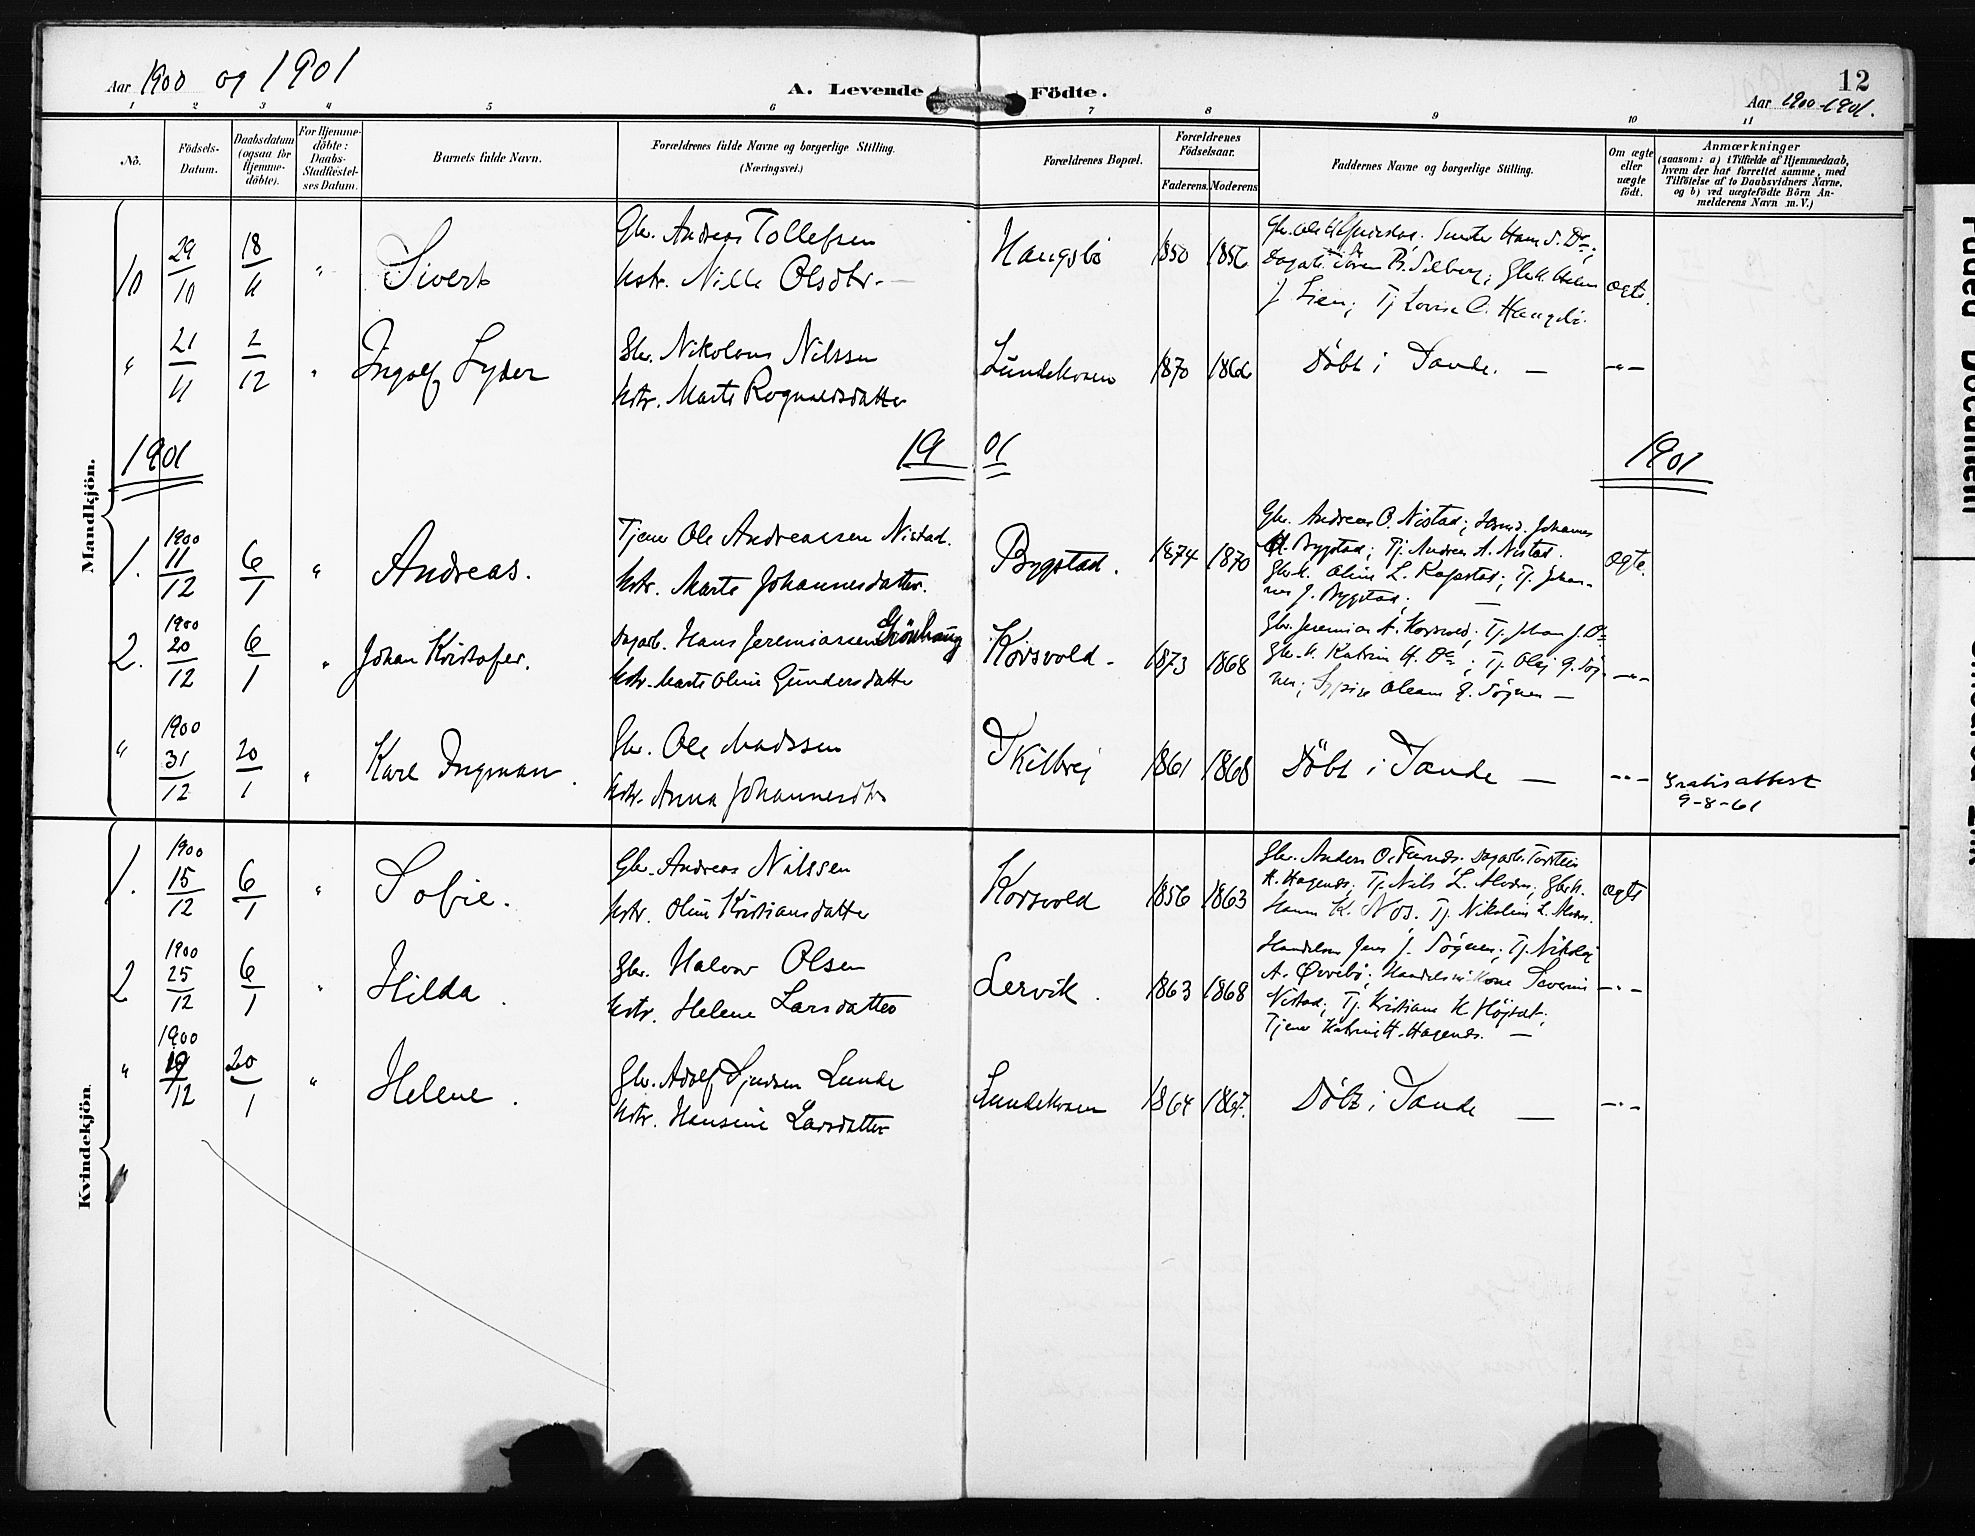 Aar 1900 og 1901
A. Levende Födte.
12
Aar 1900-1901.
1 2 3 4 5 6 7 8 9 10 11
No.
Födsels-
Datum.
Daabsdatum
(ogsaa for
Hjemme-
döbte).
For Hjemme-
döbte:
Daabs-
Stadfæstel-
ses Datum.
Barnets fulde Navn.
Forældrenes fulde Navne og borgerlige Stilling.
(Næringsvei.)
Forældrenes Bopæl.
Forældrenes
Födselsaar.
Faderens. Moderens
Faddernes Navne og borgerlige Stilling.
Om ægte
eller
uægte
födt.
Anmærkninger
(saasom: a) i Tilfælde af Hjemmedaab,
hvem der har forrettet samme, med
Tilföielse af to Daabsvidners Navne.
og b) ved uægtefödte Börn An-
melderens Navn m. V.)
Mandkjön.
10 29/10 18/11 " Sivert
Gbr. Andreas Tollefsen
Kstr. Nille Olsdtr. —
Haugsbö 1850 1856
ægte.
" 21/11 2/12 " Ingolf Lyder
Gbr. Nikolaus Nilssen
Kstr. Marte Rognaldsdatter
Lundekvam 1870 1866 Döbt i Sande. — -"-
1901 1901 1901
1. 1900 11/12 6/1 " Andreas.
Tjener Ole Andreassen Nistad.
Kstr. Marte Johannesdatter.
Bygstad. 1874 1870
Gbr. Andreas O. Nistad; Johannes
Bygstad; Tj. Andrea A. Nistad.
Gbrk. Oline L. Rapstad; Tj. Johan-
nes J. Bygstad. —
ægte.
2. 1900 20/12 6/1 " Johan Kristofer.
Dagarb. Hans Jeremiassen Grönhaug
Kstr. Marte Oline Gundersdatter
Korsvold - 1873 1868
Gbr. Jeremias A. Korsvold; Tj. Johan J. Do
Gbr.k. Katrine H. Do; Tj. Olai
-"-
" 1900 31/12 20/1 " Karl Ingman.
Gbr. Ole Madssen
Kstr. Anna Johannesdtr
Skilbrei 1861 1868 Döbt i Sande — -"-
Gratisattest
9-8-61
Kvindekjön
1. 1900 15/12 6/1 " Sofie.
Gbr. Andreas Nilssen
Kstr. Oline Kristiansdatter
Korsvold 1856 1863
Gbr. Anders O. Dagarb. Torstein
Tj. Nils L. Gbrk.
Tj. Nikoline L.
ægte
2 1900 25/12 6/1 " Hilda.
Gbr. Halvor Olsen
Kstr. Helene Larsdatter
Lervik. 1863 1868
Handelsm. Jens J. Tj. Nikolai
A. Övrebö; Handelsm. kone Severine
Nistad; Tj. Kristiane
Tjener Katrine H. —
-"-
" 1900 19/12 20/1 " Helene.
Gbr. Adolf Sjursen Lunde
Kstr. Hansine Larsdatter
Lundekvam 1864 1867. Döbt i Sande — -"-
"
Faded Document